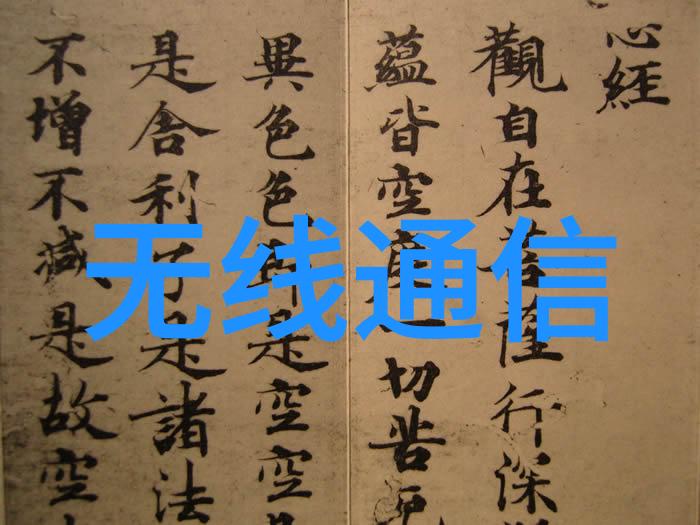 心經
觀自在菩薩行深
蘊皆空度一切苦厄
異色色即是空空是
是舍利子是諸法
不增不減是故空
无线通信